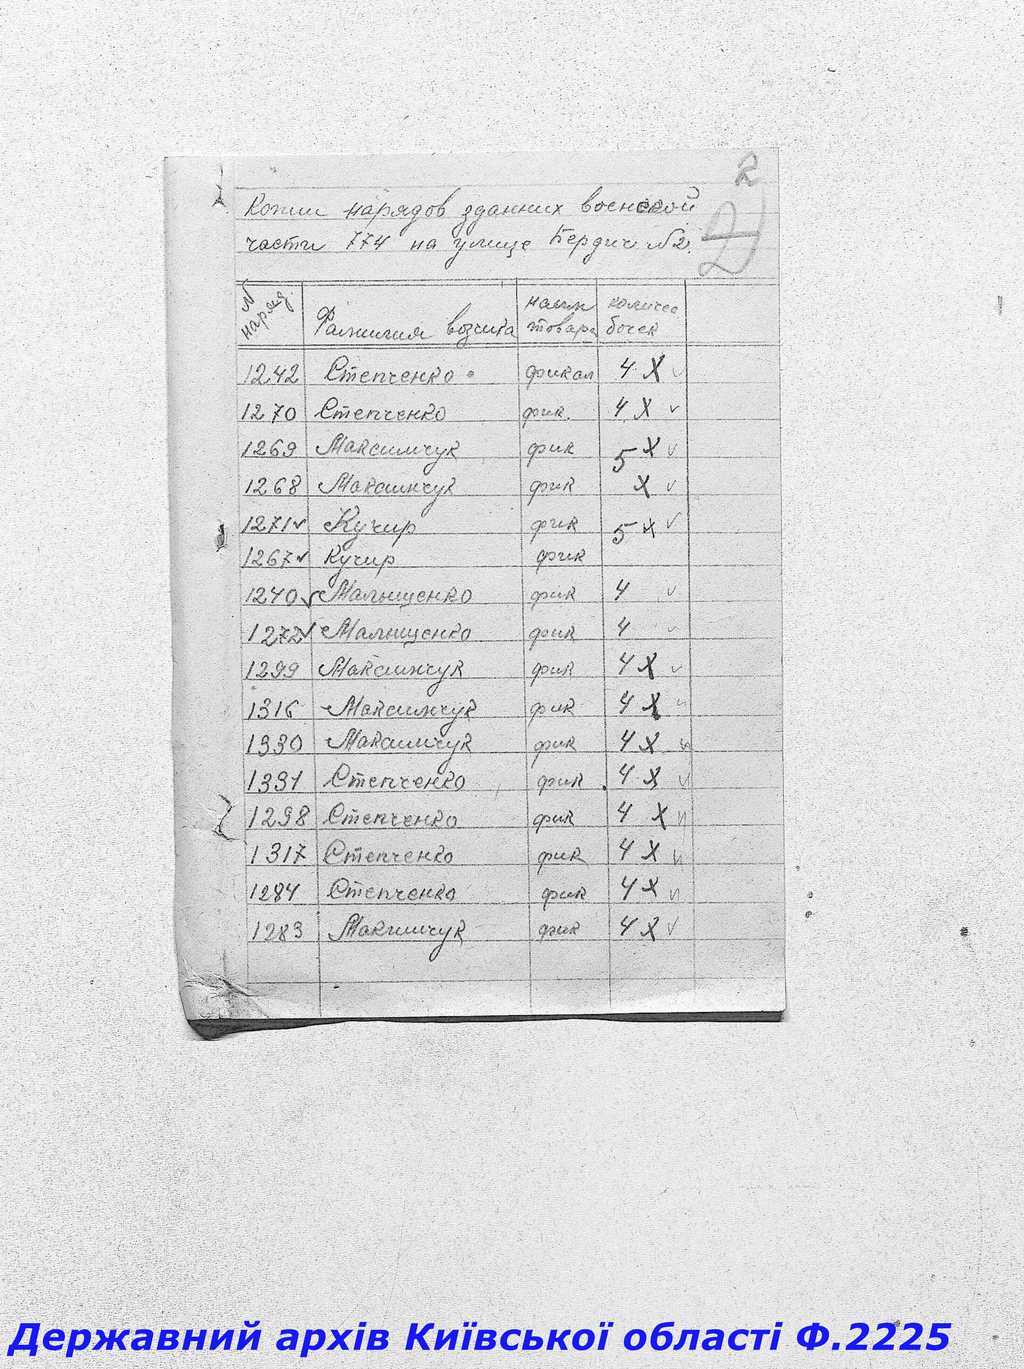 2
2
Копии нарядов зданних военской
части 774 на улице Бердич №2.
№ наряд. Фамилия возчика наим товара количес бочек
1242 Степченко фикал 4 X ✓
1270 Степченко фик. 4 X ✓
1269 Максимчук фик 5 X ✓
1268 Максимчук фик X ✓
1271 ✓ Кучир фик 5 X ✓
1267 ✓ Кучир фик
1240 ✓ Малыщенко фик 4 ✓
1272 ✓ Малыщенко фик 4 ✓
1299 Максимчук фик 4 X ✓
1316 Максимчук фик 4 X ✓
1330 Максимчук фик 4 X ✓
1331 Степченко фик 4 X ✓
1298 Степченко фик 4 X ✓
1317 Степченко фик 4 X ✓
1284 Степченко фик 4 X ✓
1283 Максимчук фик 4 X ✓
Державний архів Київської області Ф.2225